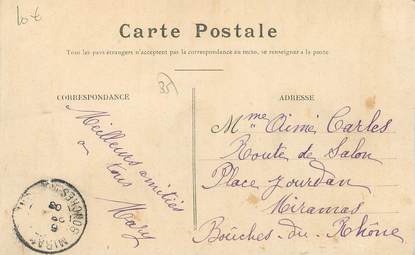 10€
Carte Postale
Tous les pays étrangers n'acceptent pas la correspondance au recto, se renseigner à la poste.
35
CORRESPONDANCE
Meilleurs amitiés
à tous
Mary
ADRESSE
Mme Aimé Carles
Route de Salon
Place Jourdan
Miramas
Bouches-du-Rhône
MIRAMAS